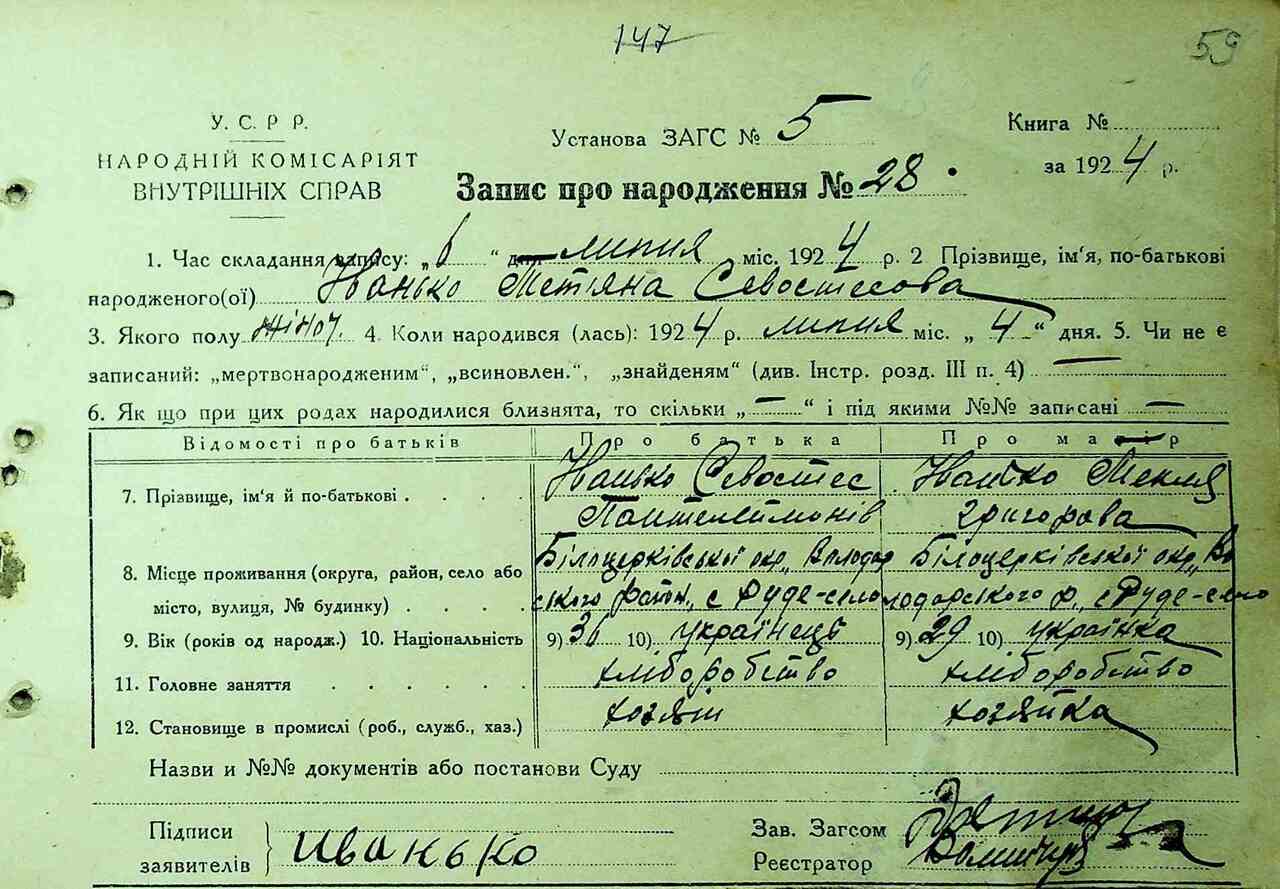 147
59
У. С. Р Р.
НАРОДНІЙ КОМІСАРІЯТ
ВНУТРІШНІХ СПРАВ
Установа ЗАГС № 5
Книга №
за 1924 р.
Запис про народження № 28
1. Час складання запису: „6“ дн. липня міс. 1924 р. 2 Прізвище, ім'я, по-батькові
народженого(ої) Іванько Тетяна Севостесова
3. Якого полу жіноч. 4. Коли народився (лась): 1924 р. липня міс. „4“ дня. 5. Чи не є
записаний: „мертвонародженим“, „всиновлен.“, „знайденям“ (див. Інстр. розд. III п. 4) —
6. Як що при цих родах народилися близнята, то скільки „—“ і під якими №№ записані —
Відомості про батьків Про батька Про матір
7. Прізвище, ім'я й по-батькові . . . . Іванько Севостес Іванько Текля
Пантелеймонів Григорова
8. Місце проживання (округа, район, село або Білоцерківської окр., Володар Білоцерківської окр., Во
місто, вулиця, № будинку) . . . . ського район, с Руде-село лодарського р., с Руде-село
9. Вік (років од народж.) 10. Національність 9) 36 10) українець 9) 29 10) українка
11. Головне заняття . . . . . . хліборобство хліборобство
12. Становище в промислі (роб., служб., хаз.) хозяїн хозяйка
Назви и №№ документів або постанови Суду
Підписи
заявителів Иванько
Зав. Загсом
Реєстратор